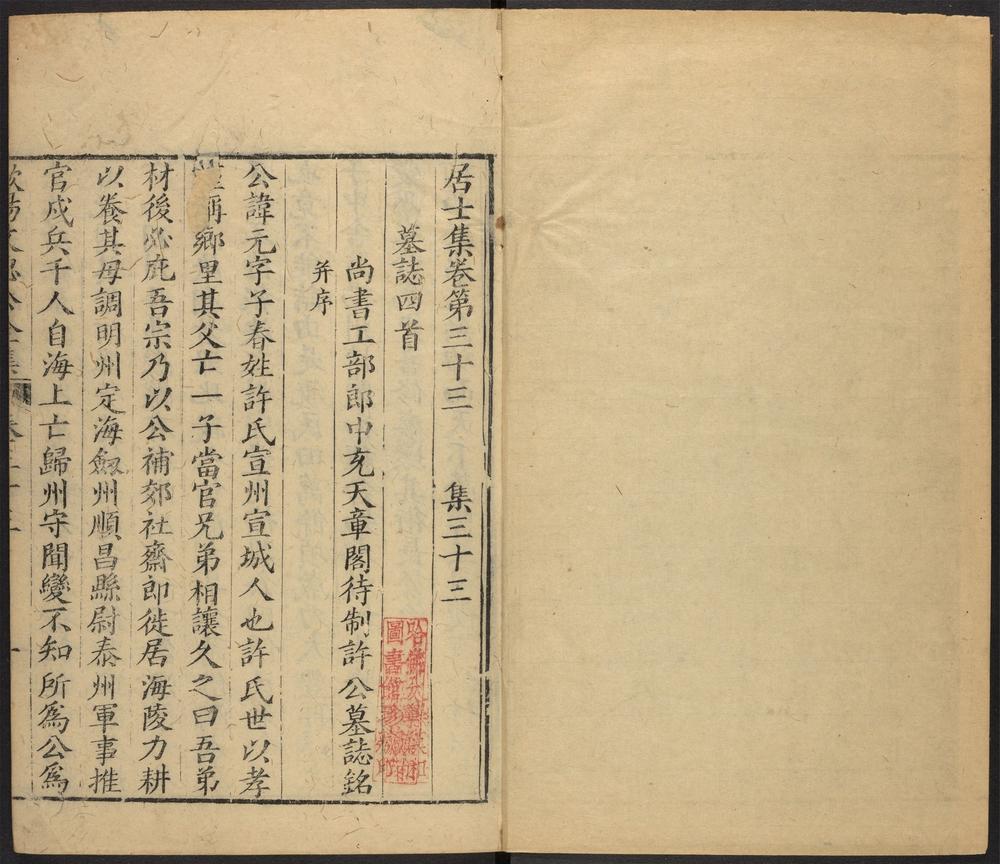 居士集卷第三十三 集三十三
墓誌四首
尚書工部郎中充天章閣待制許公墓誌銘
并序
公諱元字子春姓許氏宣州宣城人也許氏世以孝
稱鄉里其父亡一子當官兄弟相讓久之曰吾弟
材後必庇吾宗乃以公補郊社齋郎徙居海陵力耕
以養其母調明州定海劔州順昌縣尉泰州軍事推
官戍兵千人自海上亡歸州守聞變不知所爲公爲
哈佛大學漢和
圖書館珍藏印